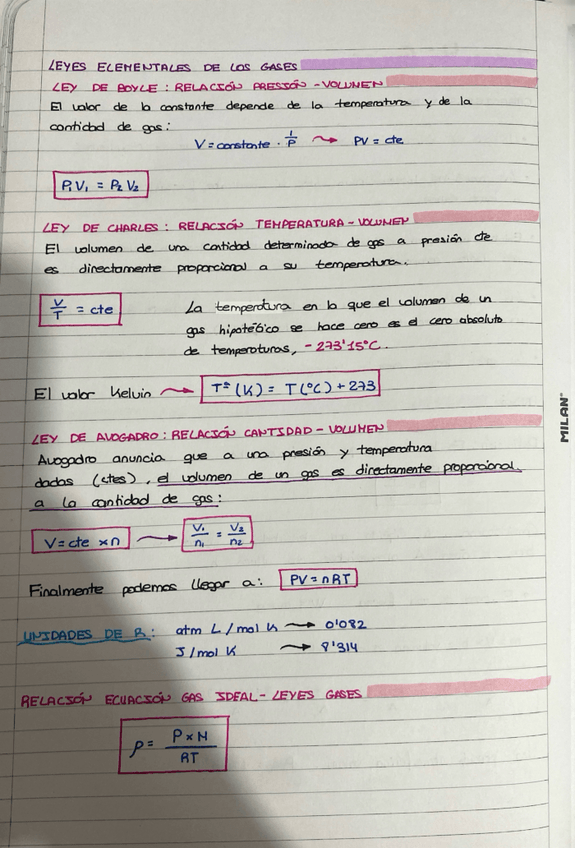 LEYES ELEMENTALES DE LOS GASES
LEY DE BOYLE: RELACIÓN PRESIÓN - VOLUMEN
El valor de la constante depende de la temperatura y de la
cantidad de gas:
V = constante · 1/P → PV = cte
P₁V₁ = P₂V₂
LEY DE CHARLES: RELACIÓN TEMPERATURA - VOLUMEN
El volumen de una cantidad determinada de gas a presión cte
es directamente proporcional a su temperatura.
V/T = cte
La temperatura en la que el volumen de un
gas hipotético se hace cero es el cero absoluto
de temperaturas, -273'15°C.
El valor Kelvin → Tª (K) = T(°C) + 273
LEY DE AVOGADRO: RELACIÓN CANTIDAD - VOLUMEN
Avogadro anuncia que a una presión y temperatura
dadas (ctes), el volumen de un gas es directamente proporcional
a la cantidad de gas:
V = cte × n → V₁/n₁ = V₂/n₂
Finalmente podemos llegar a: PV = nRT
UNIDADES DE R: atm L/mol K → 0'082
J/mol K → 8'314
RELACIÓN ECUACIÓN GAS IDEAL - LEYES GASES
ρ = P × M / RT
MILAN